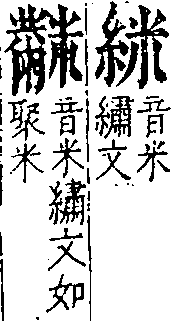 䋛
音米
繡文
音米繡文如
聚米